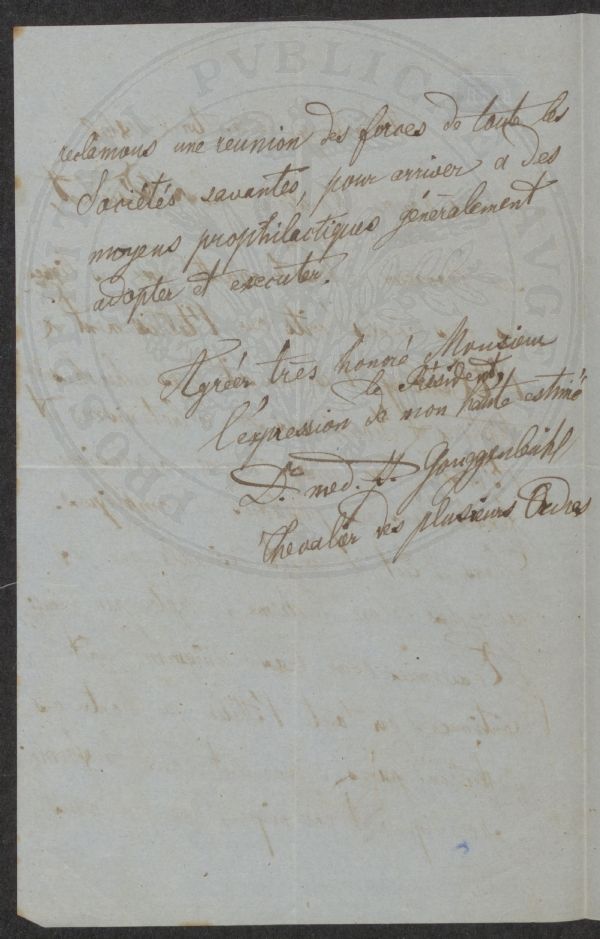 reclamons une reunion des forces de toute les
Sociétés savantes, pour arriver a des
moyens prophilactiques généralement
adopter et executer.
Agréer très honoré Monsieur
le Président
l'expression de mon haute estime
Dr. med. Gouggenbühl
Chevalier des plusieurs Ordres